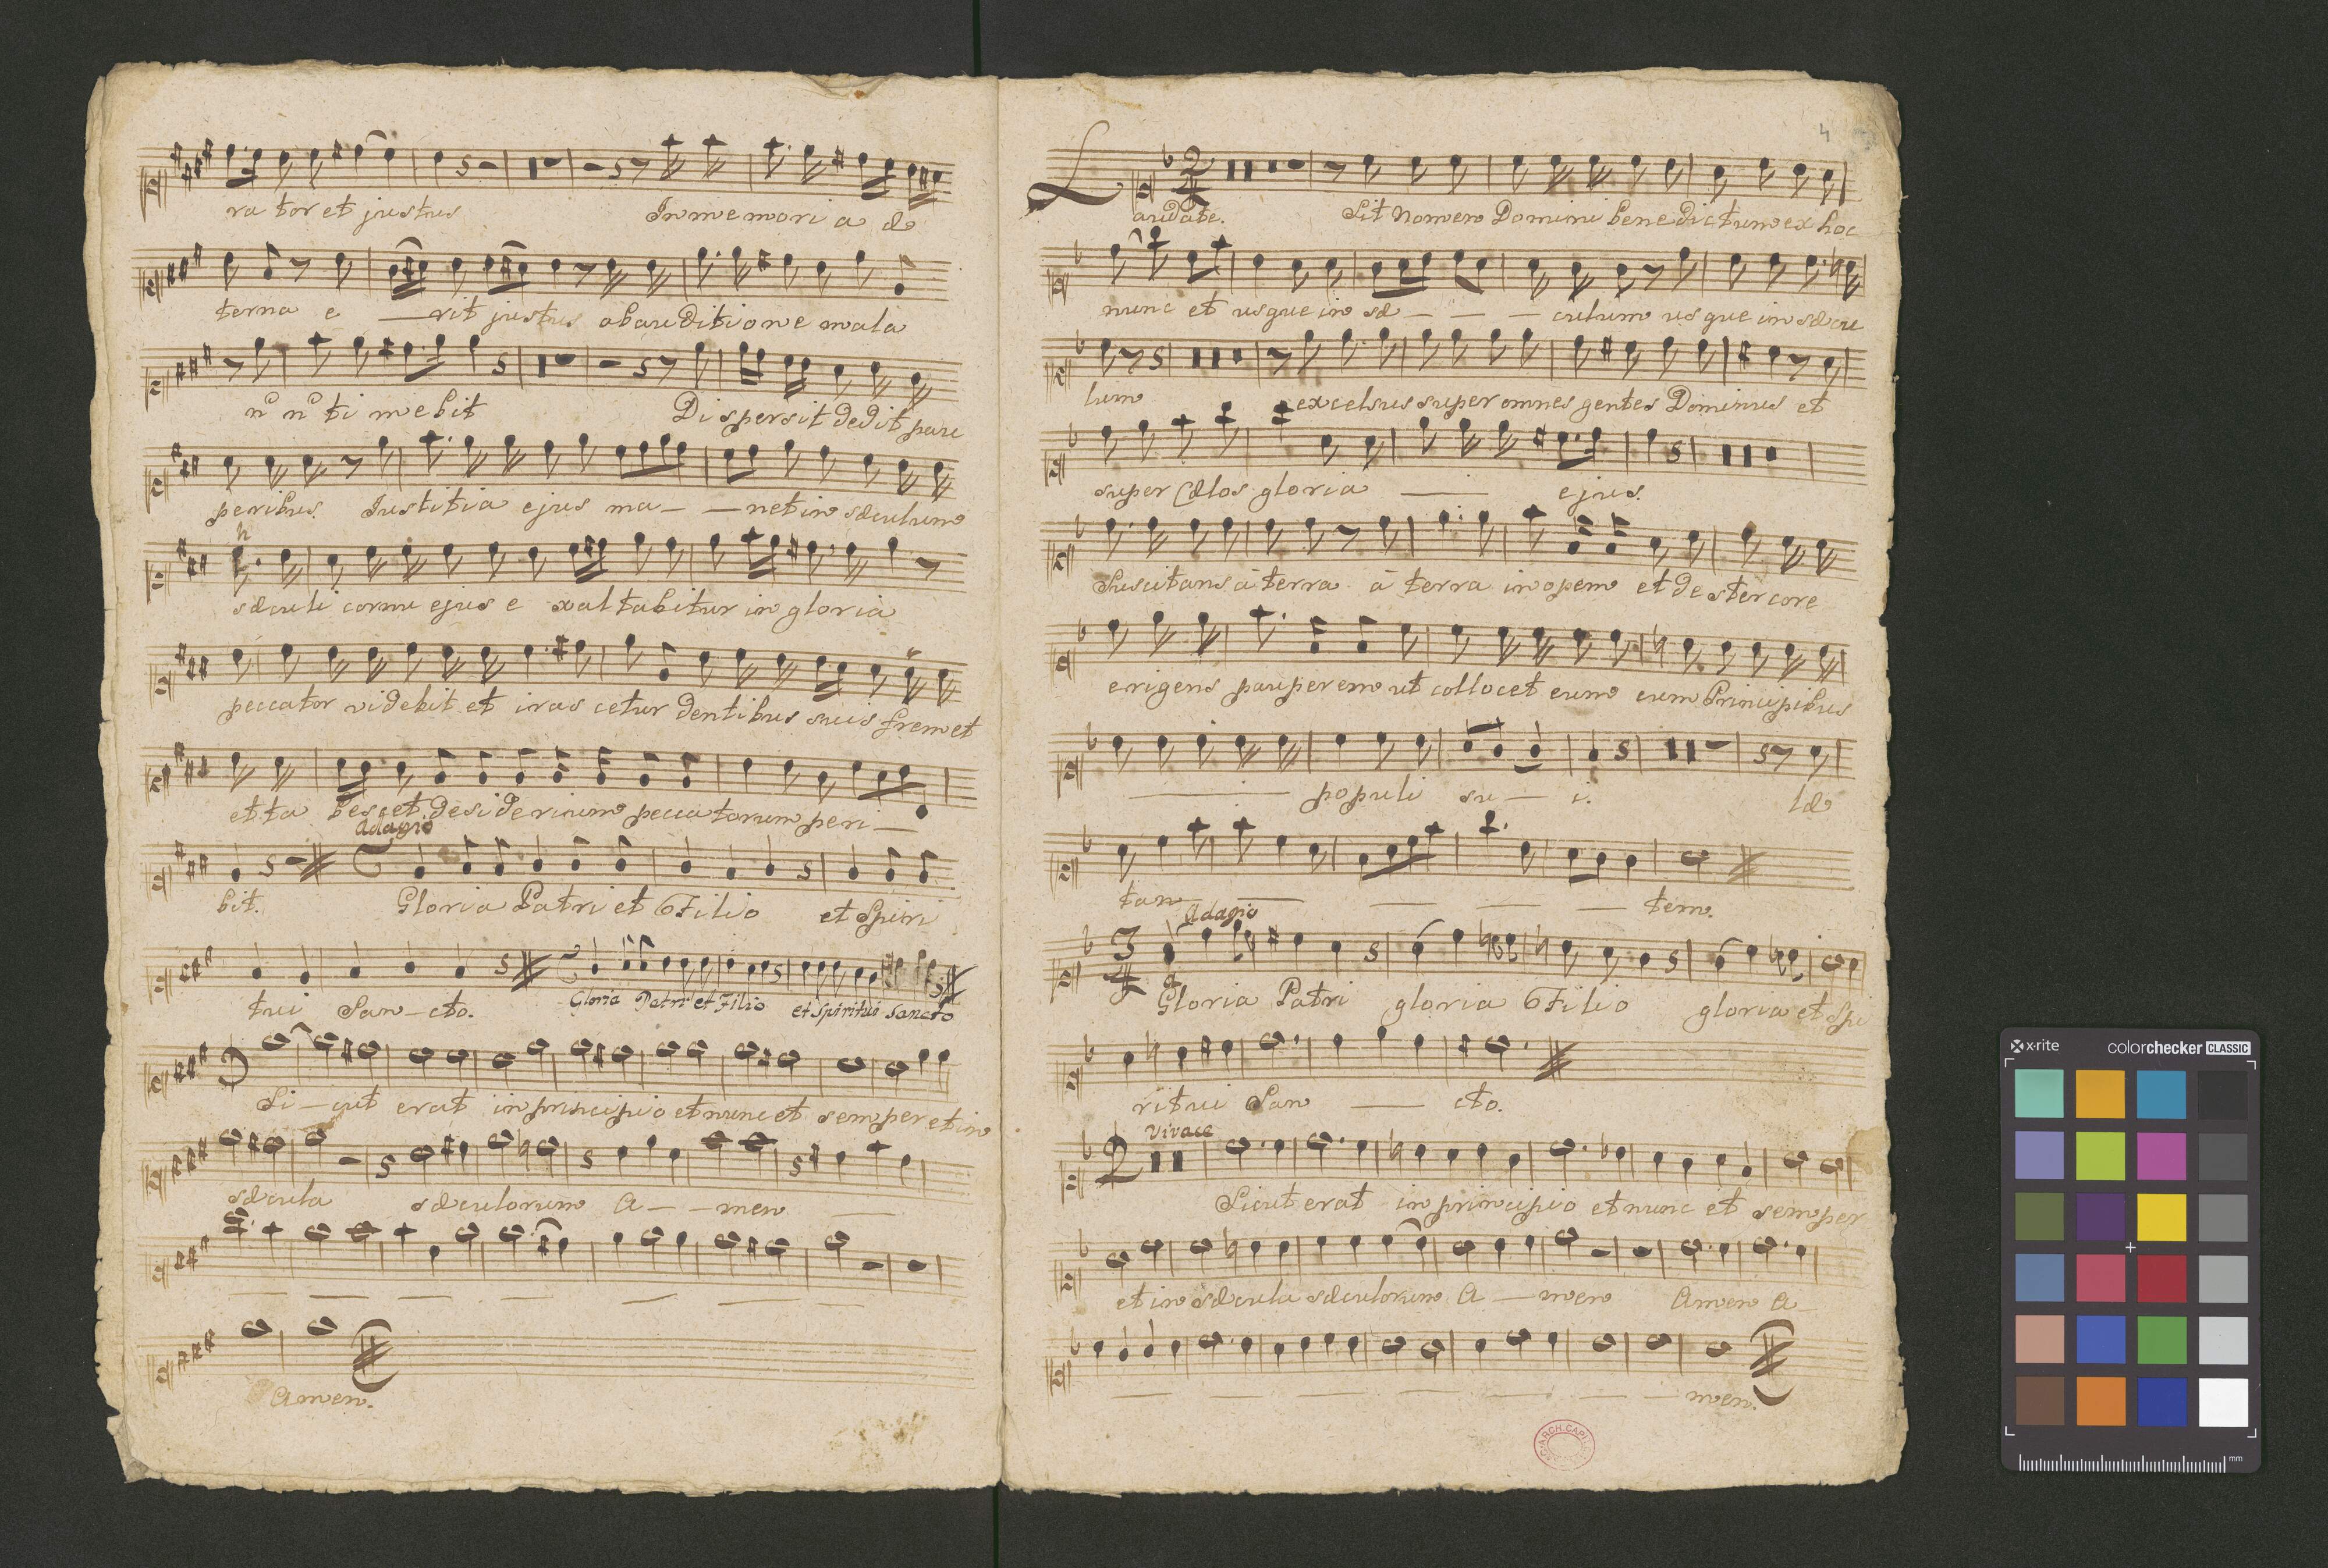 rator et justus In memoria æ
terna e - rit justus ab auditione mala
nō nō timebit Dispersit dedit pau
peribus. Justitia ejus ma - - net in sæculum
sæculi cornu ejus exaltabitur in gloria
peccator videbit et irascetur dentibus suis fremet
et tabescet desiderium peccatorum peri -
Adagio
bit. Gloria Patri et Filio et Spiri
tui San - cto. Gloria Patri et Filio et Spiritui Sancto
Si - cut erat in principio et nunc et semper et in
sæcula sæculorum A - - men
Amen.
4
Laudate. Sit Nomen Domini benedictum ex hoc
nunc et usque in sæ - - - culum usque in sæcu
lum excelsus super omnes gentes Dominus et
super Cælos gloria - ejus.
Suscitans à terra à terra inopem et de stercore
erigens pauperem ut collocet eum cum Principibus
populi su - i. læ
tan - - - - - tem.
Adagio
3/4 Gloria Patri gloria Filio gloria et Spi
ritui San - cto.
Vivace
2 Sicut erat in principio et nunc et semper
et in sæcula sæculorum A - men Amen A
- - - - - - - men.
ARCH. CAP
x-rite colorchecker CLASSIC
mm